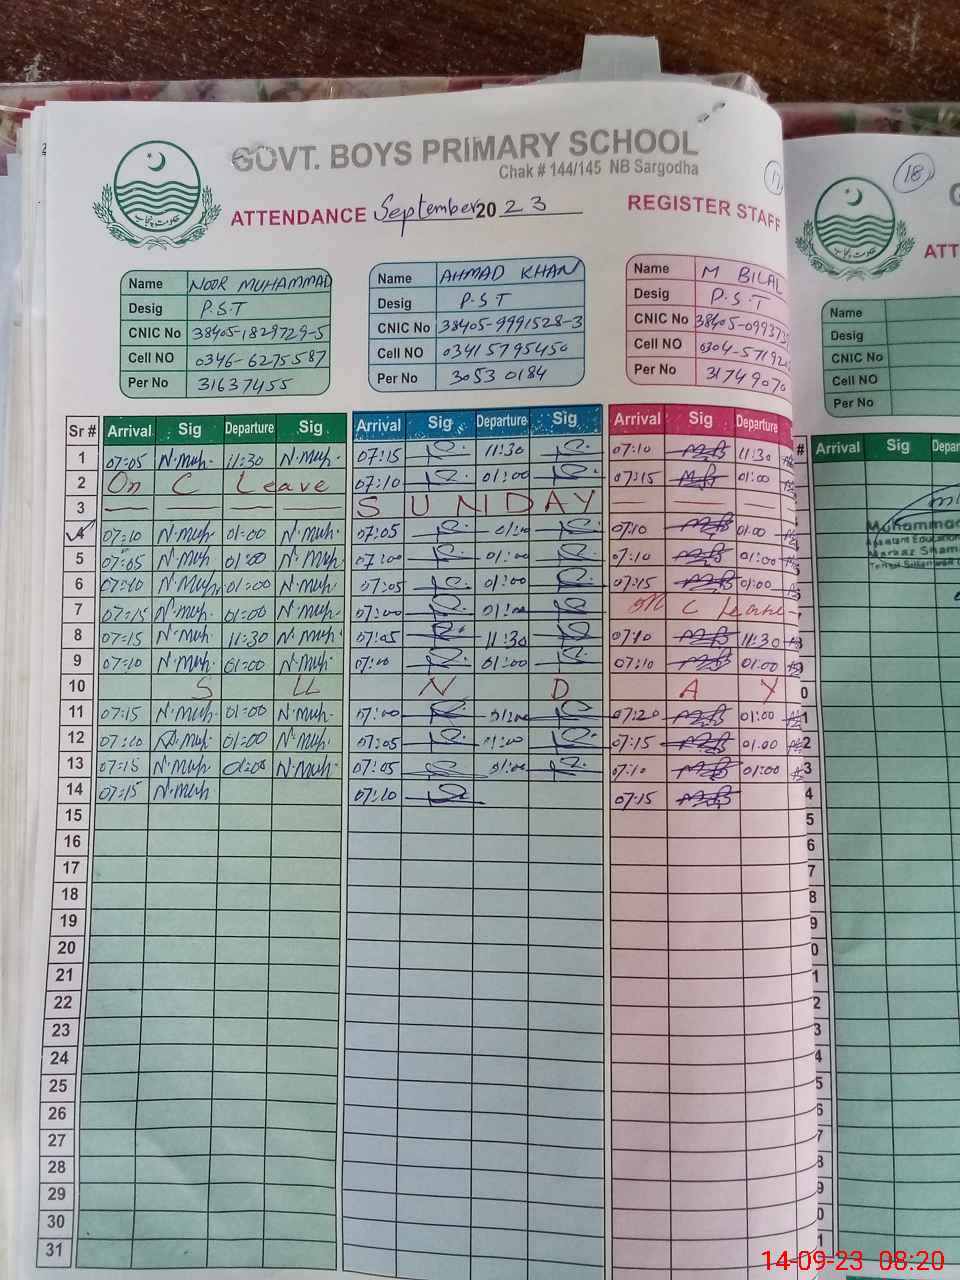 GOVT. BOYS PRIMARY SCHOOL
Chak # 144/145 NB Sargodha
17
ATTENDANCE September 2023 REGISTER STAFF
Name NOOR MUHAMMAD
Desig P.S.T
CNIC No 38405-1829729-5
Cell NO 0346-6275587
Per No 31637455
Name AHMAD KHAN
Desig P.S.T
CNIC No 38405-9991528-3
Cell NO 03415795450
Per No 30530184
Name M BILAL
Desig P.S.T
CNIC No 38405-099373
Cell NO 0304-5719
Per No 31749070
Sr # Arrival Sig Departure Sig Arrival Sig Departure Sig Arrival Sig Departure
1 07:05 N.Muh. 11:30 N.Muh. 07:15 11:30 07:10 11:30
2 On C Leave 07:10 01:00 07:15 01:00
3 — — — — SUNDAY — — —
4 07:10 N.Muh. 01:00 N.Muh. 07:05 01:00 07:10 01:00
5 07:05 N.Muh. 01:00 N.Muh. 07:00 01:00 07:10 01:00
6 07:10 N.Muh. 01:00 N.Muh. 07:05 01:00 07:15 01:00
7 07:15 N.Muh. 01:00 N.Muh. 07:00 01:00 On C Leave
8 07:15 N.Muh. 11:30 N.Muh. 07:05 11:30 07:10 11:30
9 07:10 N.Muh. 01:00 N.Muh. 07:00 01:00 07:10 01:00
10 S U N D A Y
11 07:15 N.Muh. 01:00 N.Muh. 07:00 01:00 07:20 01:00
12 07:10 N.Muh. 01:00 N.Muh. 07:05 01:00 07:15 01:00
13 07:15 N.Muh. 01:00 N.Muh. 07:05 01:00 07:10 01:00
14 07:15 N.Muh 07:10 07:15
15
16
17
18
19
20
21
22
23
24
25
26
27
28
29
30
31
18
ATT
Name
Desig
CNIC No
Cell NO
Per No
# Arrival Sig Depar
Muhammad
14-09-23 08:20